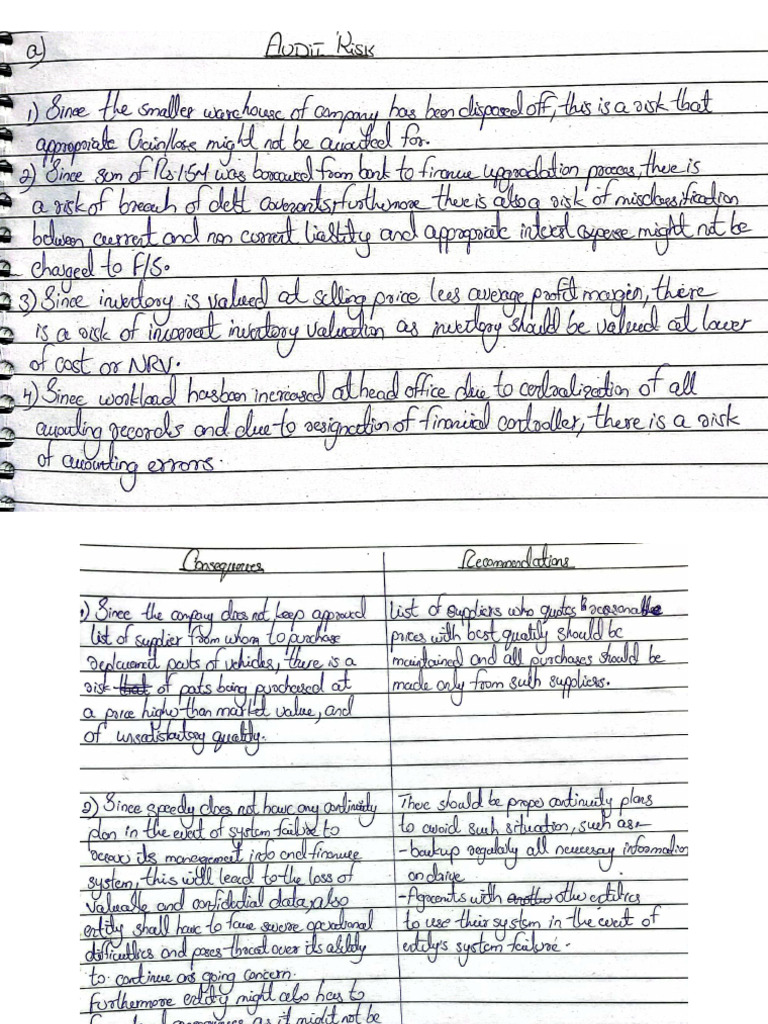 a) AUDIT RISK
1) Since the smaller warehouse of company has been disposed off, this is a risk that
appropriate Gain/loss might not be accounted for.
2) Since sum of Rs.1.5M was borrowed from bank to finance upgradation process, there is
a risk of breach of debt covenants, furthermore there is also a risk of misclassification
between current and non current liability and appropriate interest expense might not be
charged to F/S.
3) Since inventory is valued at selling price less average profit margin, there
is a risk of incorrect inventory valuation as inventory should be valued at lower
of cost or NRV.
4) Since workload has been increased at head office due to centralization of all
accounting records and due to resignation of financial controller, there is a risk
of accounting errors.
Consequences
1) Since the company does not keep approved
list of supplier from whom to purchase
replacement parts of vehicles, there is a
risk that of parts being purchased at
a price higher than market value, and
of unsatisfactory quality.
2) Since speedy does not have any continuity
plan in the event of system failure to
its management info and finance
system, this will lead to the loss of
valuable and confidential data, also
entity shall have to face severe operational
difficulties and poses threat over its ability
to continue as going concern.
Furthermore entity might also has to
as it might not be
Recommendations
List of suppliers who quotes reasonable
prices with best quality should be
maintained and all purchases should be
made only from such suppliers.
There should be proper continuity plans
to avoid such situation, such as:-
-backup regularly all necessary information
on drive.
-Agreements with another other entities
to use their system in the event of
entity's system failure.